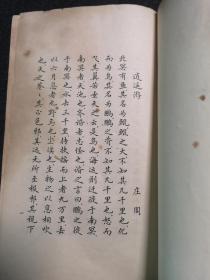 逍遥游
庄周
北冥有鱼其名为鲲鲲之大不知其几千里也化
而为鸟其名为鹏鹏之背不知其几千里也怒而
飞其翼若垂天之云是鸟也海运则徙于南冥
南冥者天池也齐谐者志怪者也谐之言曰鹏之徙
于南冥也水击三千里抟扶摇而上者九万里去
以六月息者也野马也尘埃也生物之以息相吹
也天之苍苍其正色邪其远无所至极邪其视下